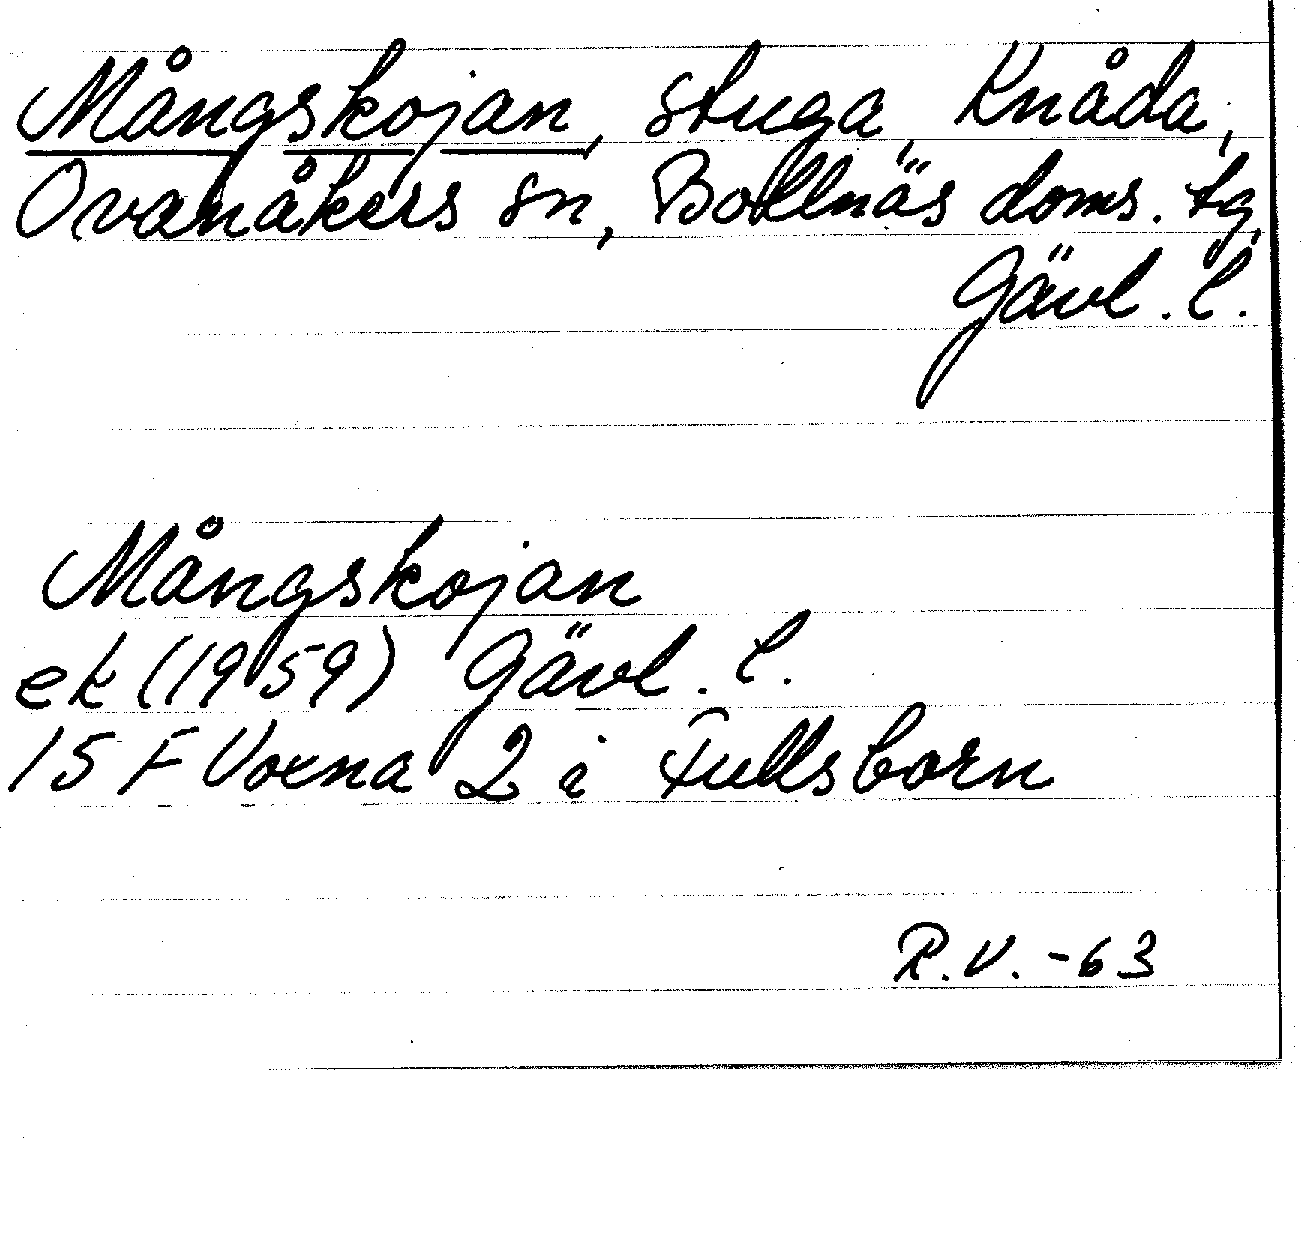 Mångskojan, stuga, Knåda,
Ovanåkers sn, Bollnäs doms. tg,
Gävl. l.
Mångskojan
ek (1959) Gävl. l.
15 F Voxna 2 i Fullsborn
R.V. -63